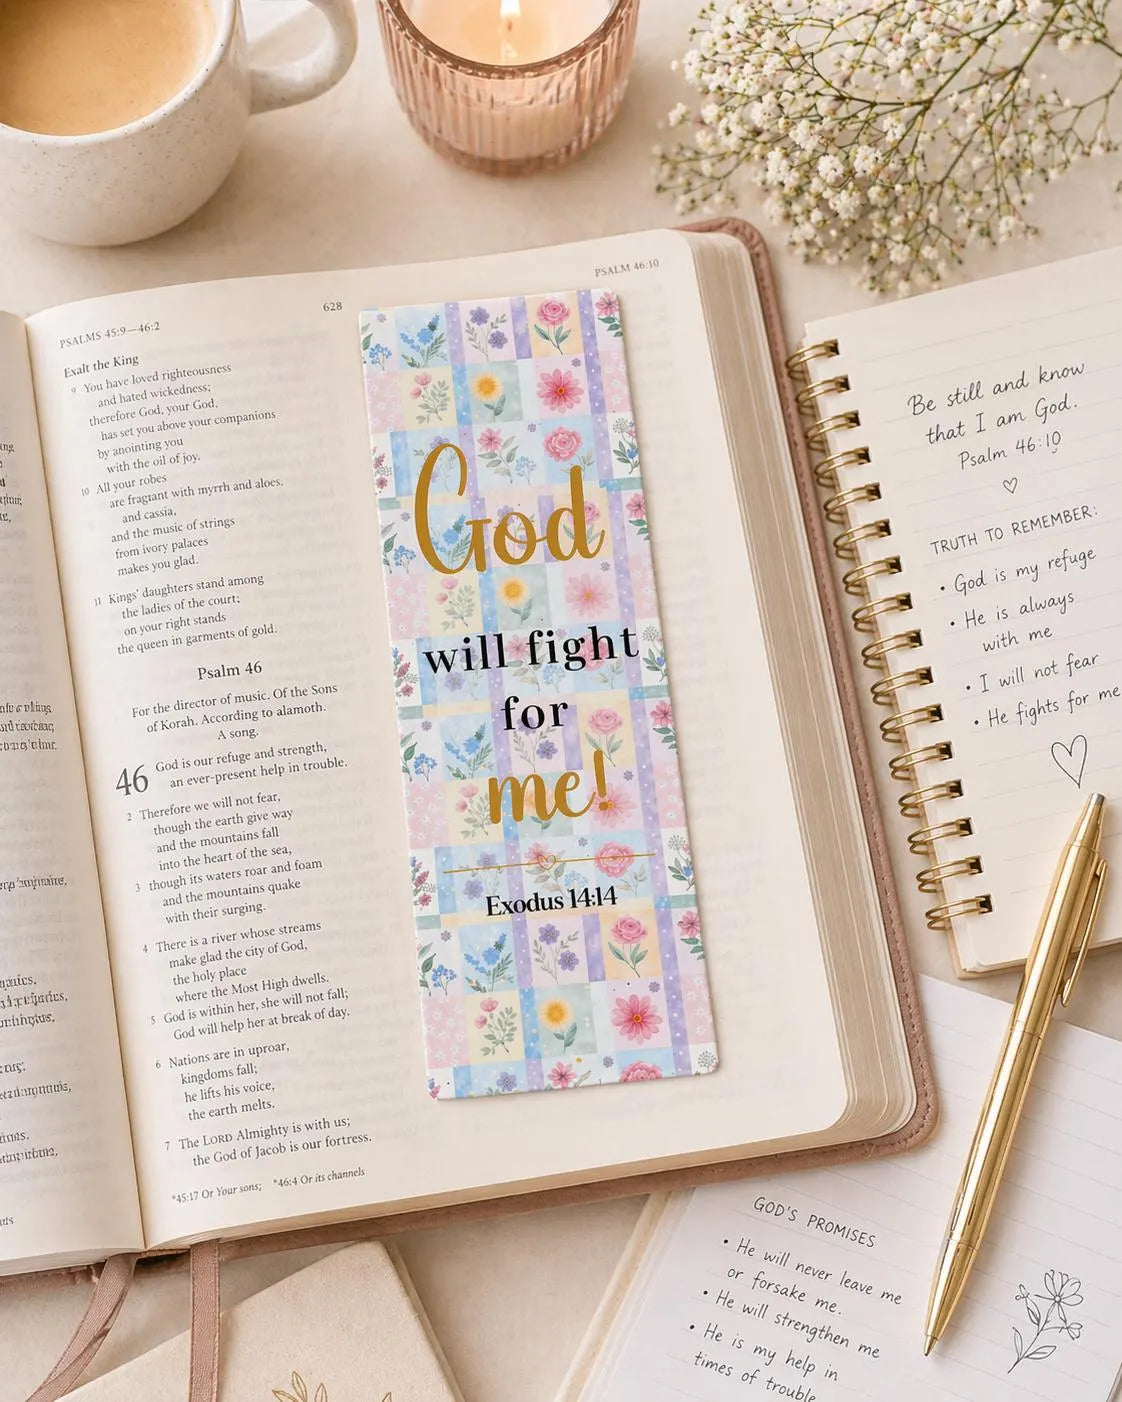 PSALMS 45:9—46:2
628
PSALM 46:10
Exalt the King
9 You have loved righteousness
and hated wickedness;
therefore God, your God,
has set you above your companions
by anointing you
with the oil of joy.
10 All your robes
are fragrant with myrrh and aloes.
and cassia,
and the music of strings
from ivory palaces
makes you glad.
11 Kings' daughters stand among
the ladies of the court;
on your right stands
the queen in garments of gold.
Psalm 46
For the director of music. Of the Sons
of Korah. According to alamoth.
A song.
46 God is our refuge and strength,
an ever-present help in trouble.
2 Therefore we will not fear,
though the earth give way
and the mountains fall
into the heart of the sea,
3 though its waters roar and foam
and the mountains quake
with their surging.
4 There is a river whose streams
make glad the city of God,
the holy place
where the Most High dwells.
5 God is within her, she will not fall;
God will help her at break of day.
6 Nations are in uproar,
kingdoms fall;
he lifts his voice,
the earth melts.
7 The LORD Almighty is with us;
the God of Jacob is our fortress.
*45:17 Or Your sons; *46:4 Or its channels
God
will fight
for
me!
Exodus 14:14
Be still and know
that I am God.
Psalm 46:10
TRUTH TO REMEMBER:
• God is my refuge
• He is always
with me
• I will not fear
• He fights for me
GOD'S PROMISES
• He will never leave me
or forsake me.
• He will strengthen me
• He is my help in
times of trouble